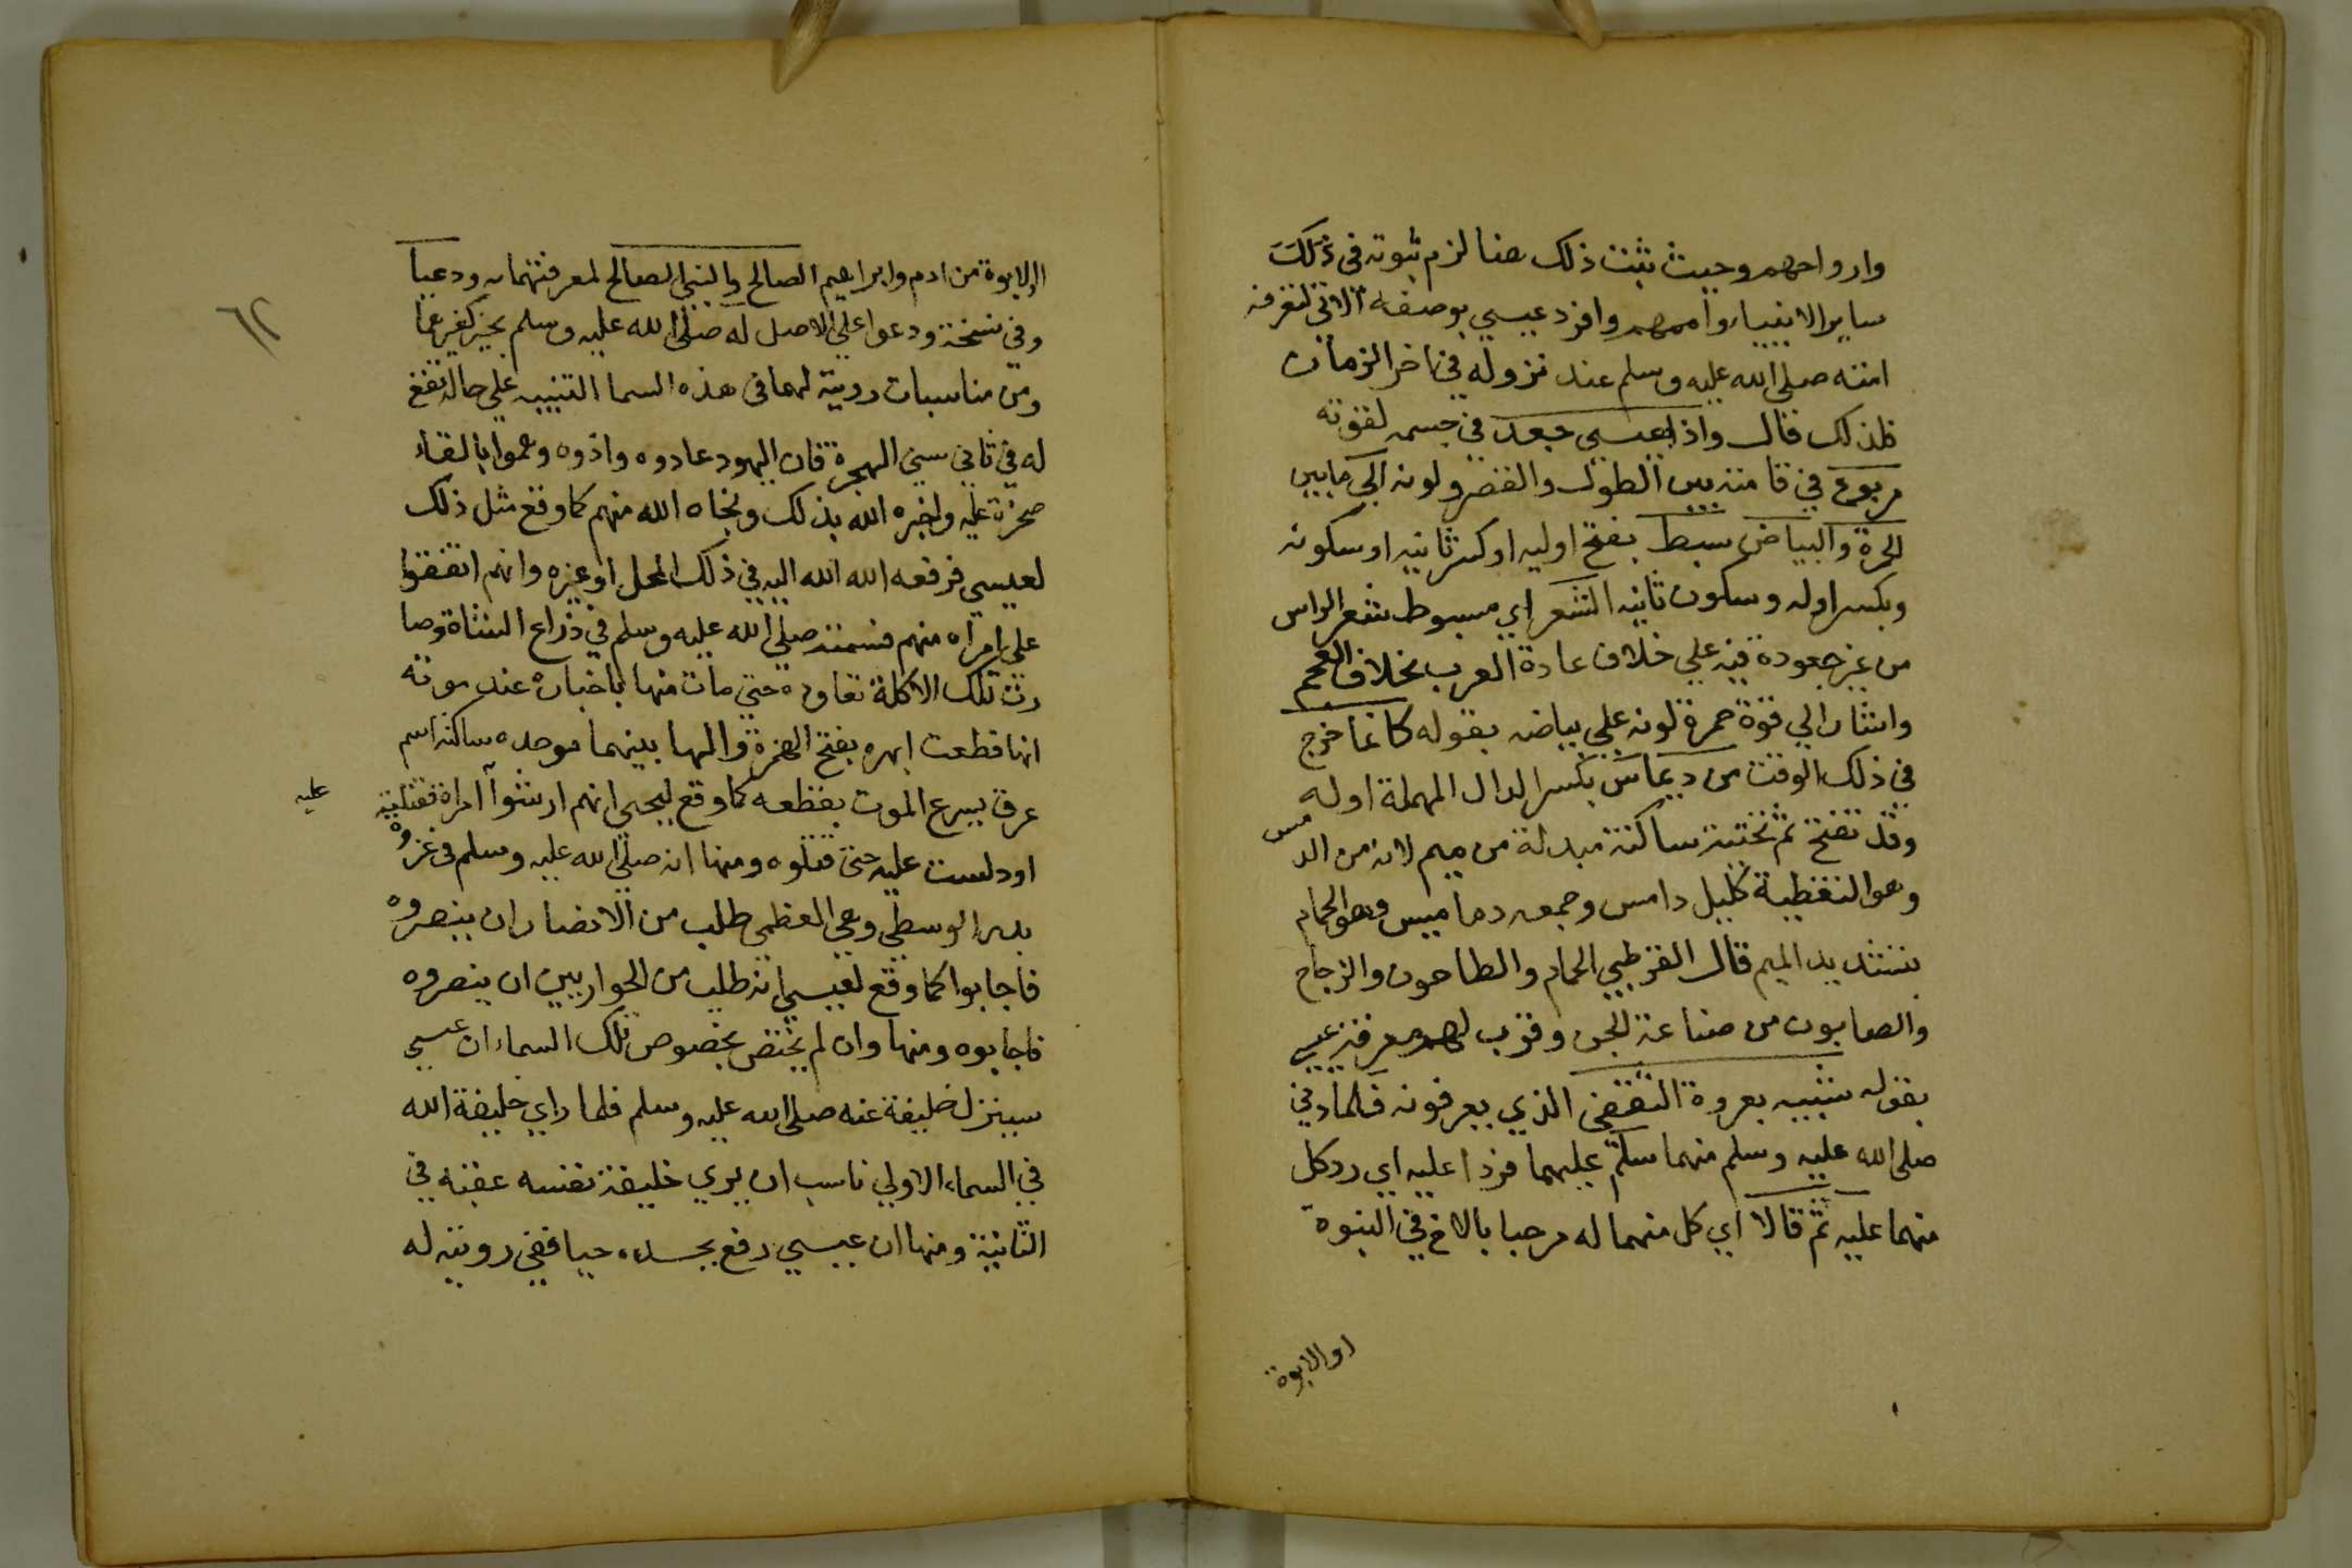 وارواحهم وحيث ثبت ذلك هنا لزم ثبوته في ذلك
ساير الانبياء واممهم وافرد عيسي بوصفه الاتي لتعرفه
امته صلى الله عليه وسلم عند نزوله في اخر الزمان
فلذلك قال واذا بعيسي جعد في جسمه لقوته
مربوع في قامته بين الطول والقصر ولونه الي ما بين
الحمرة والبياض سبط بفتح اوليه او كسر ثانيه او سكونه
وبكسر اوله وسكون ثانيه الشعر اي مبسوط شعر الراس
من غير جعودة فيه علي خلاف عادة العرب بخلاف العجم
واشار الي قوة حمرة لونه علي بياضه بقوله كانما خرج
في ذلك الوقت من ديماس بكسر الدال المهملة اوله
وقد تفتح ثم تحتية ساكنة مبدلة من ميم لانه من الدمس
وهو التغطية كليل دامس وجمعه دماميس وهو الحمام
بتشديد الميم قال القرطبي الحمام والطاحون والزجاج
والصابون من صناعة الجن وقرب لهم معرفة عيسي
بقوله شبيه بعروة الثقفي الذي يعرفونه فلما دني
صلى الله عليه وسلم منهما سلم عليهما فردا عليه اي رد كل
منهما عليه ثم قالا اي كل منهما له مرحبا بالاخ في النبوة
او الابوة
٦٢
الابوة من ادم وابراهيم الصالح والنبي الصالح لمعرفتهما به ودعيا
وفي نسخة ودعوا علي الاصل له صلى الله عليه وسلم بخير كغيرهما
ومن مناسبات رويته لهما في هذه السما التنبيه علي حالة تقع
له في ثاني سني الهجرة فان اليهود عادوه واذوه وهموا بالقاء
صخرة عليه واخبره الله بذلك ونجاه الله منهم كما وقع مثل ذلك
لعيسي فرفعه الله الله اليه في ذلك المحل او غيره وانهم اتفقوا
علي امراه منهم فسمته صلى الله عليه وسلم في ذراع الشاة وصا
رت تلك الاكلة تعاوده حتي مات منها باخباره عند موته
انها قطعت ابهره بفتح الهمزة والها بينهما موحده ساكنة اسم
عرق يسرع الموت بقطعه كما وقع ليحيي انهم ارشوا امراة فقتلته
عليه
او دلست عليه حتي قتلوه ومنها انه صلى الله عليه وسلم في غزوة
بدر الوسطي وهي العظمي طلب من الانصار ان ينصروه
فاجابوا كما وقع لعيسي انه طلب من الحواريين ان ينصروه
فاجابوه ومنها وان لم يختص بخصوص تلك السماء ان عيسي
سينزل خليفة عنه صلى الله عليه وسلم فلما راي خليفة الله
في السماء الاولي ناسب ان يري خليفة نفسه عقبه في
الثانية ومنها ان عيسي رفع بجسده حيا ففي رويته له